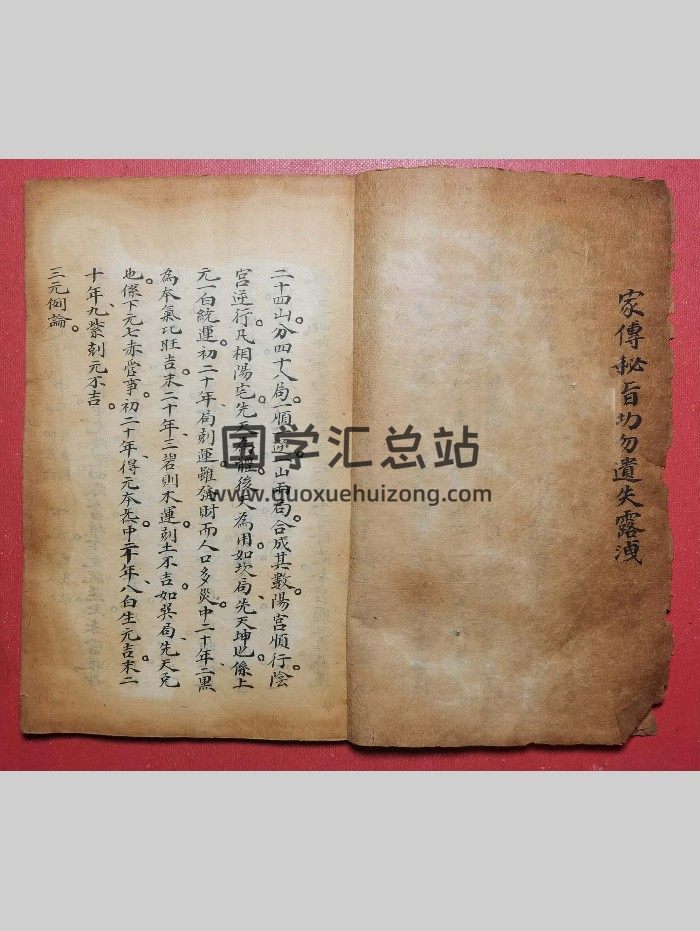 家傳秘旨切勿遺失露洩
二十四山分四十八局。一順一逆。一山兩局合成其數。陽宮順行陰
宮逆行。凡相陽宅先天為體後天為用。如坎局先天坤也。係上
元一白統運。初二十年局剋運雖發財而人口多災。中二十年二黑
為本氣比旺吉。末二十年、三碧則木運剋土不吉。如巽局先天兌
也。係下元七赤管事。初二十年、得元本炁。中二十年、八白生元吉。末二
十年、九紫剋元不吉。
三元例論。
国学汇总站
www.guoxuehuizong.com